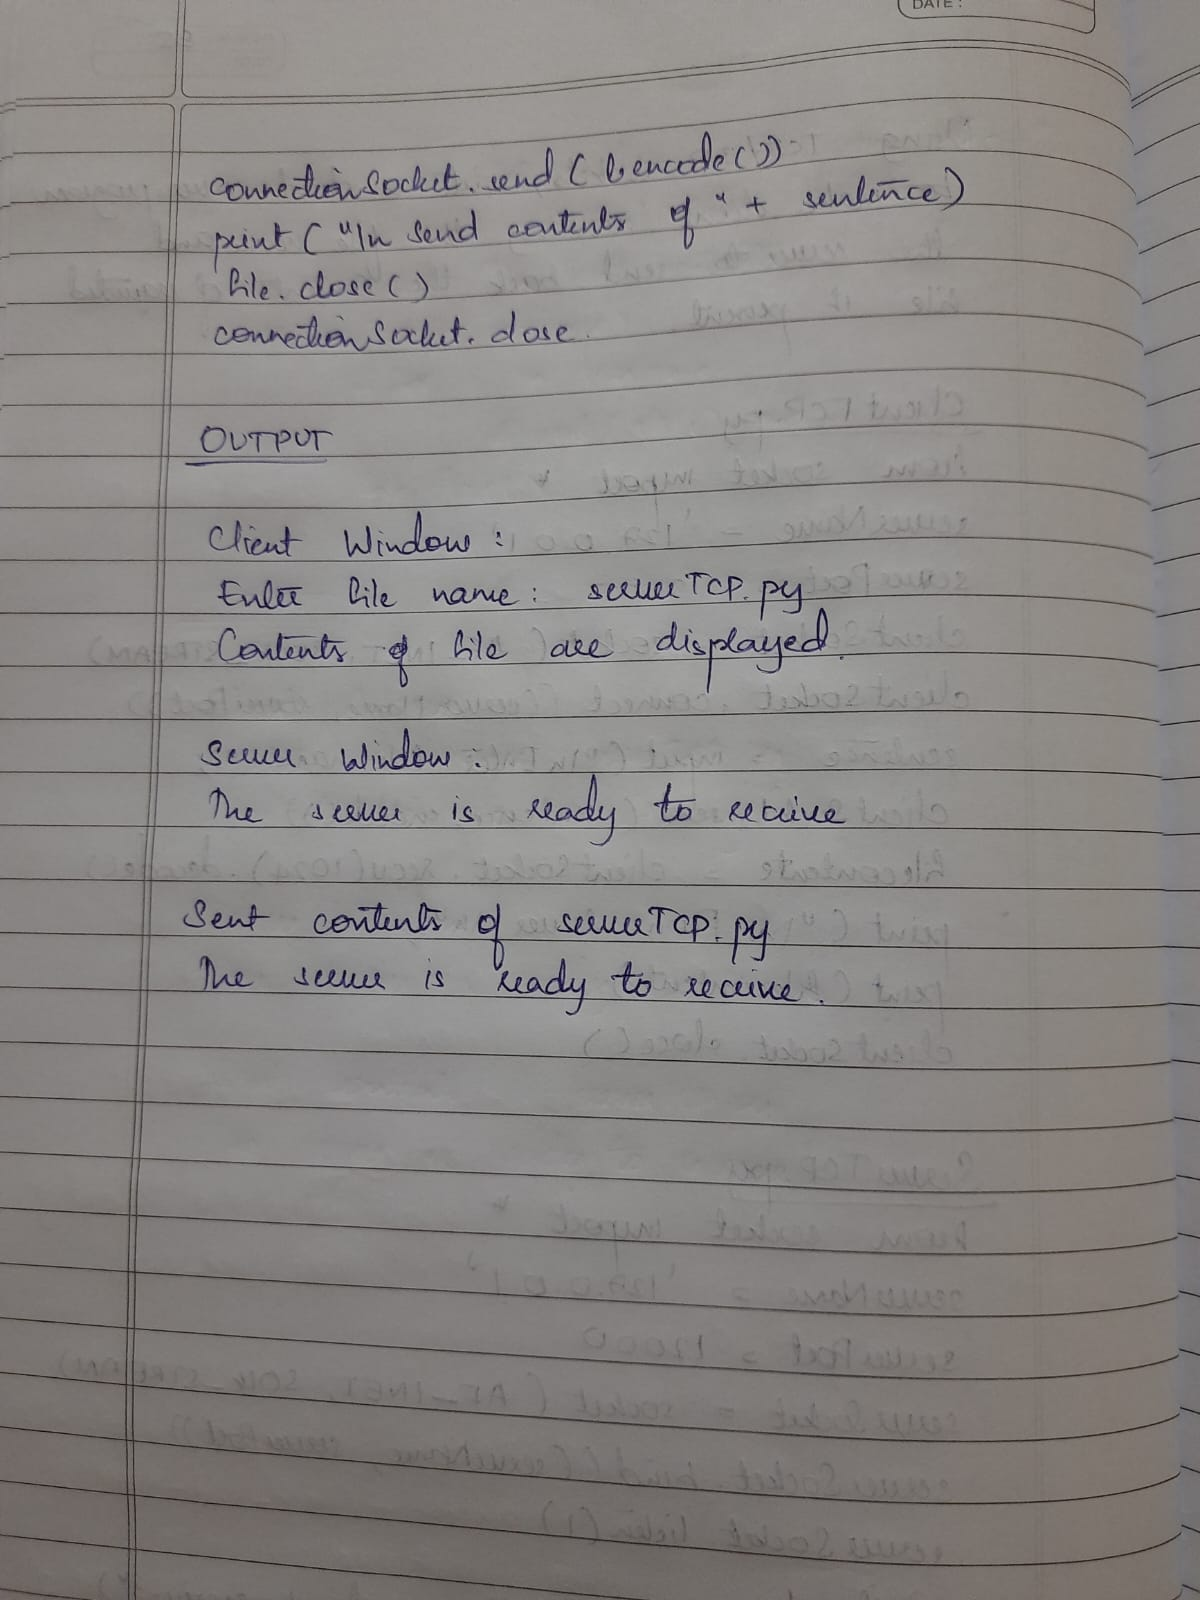 DATE:
connectionSocket.send(l.encode())
print("\n Send contents of " + sentence)
file.close()
connectionSocket.close.
OUTPUT
Client Window:
Enter file name: serverTCP.py
Contents of file are displayed.
Server Window:
The server is ready to receive
Sent contents of serverTCP.py
The server is ready to receive.